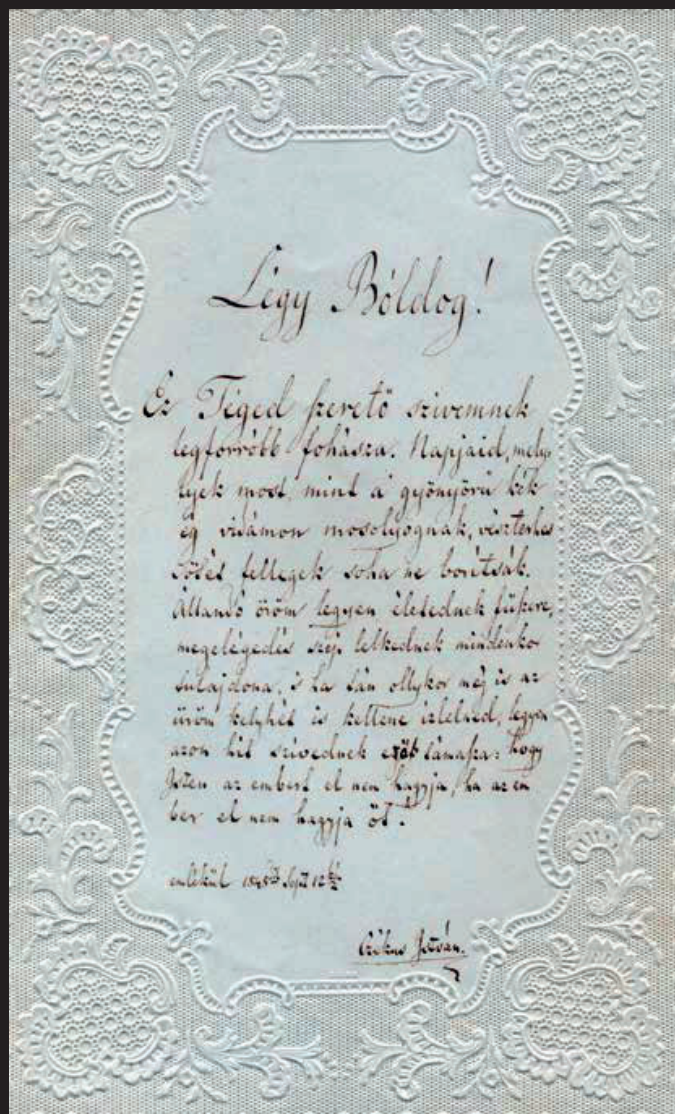 Légy Bóldog!
Ez Téged szerető szivemnek
legforróbb fohásza. Napjaid, mely-
lyek most, mint a' gyönyörű kék
ég vidámon mosolyognak, vészterhes
sötét fellegek soha ne borítsák.
Állandó öröm legyen életednek fűszere,
megelégedés szép lelkednek mindenko
tulajdona, 's ha tán ollykor még is az
üröm kelyhét is kellene izlelned, legyen
azon hit szivednek erőb támasza: hogy
Isten az embert el nem hagyja, ha az em
ber el nem hagyja őt!
emlékül Sept 12
István.